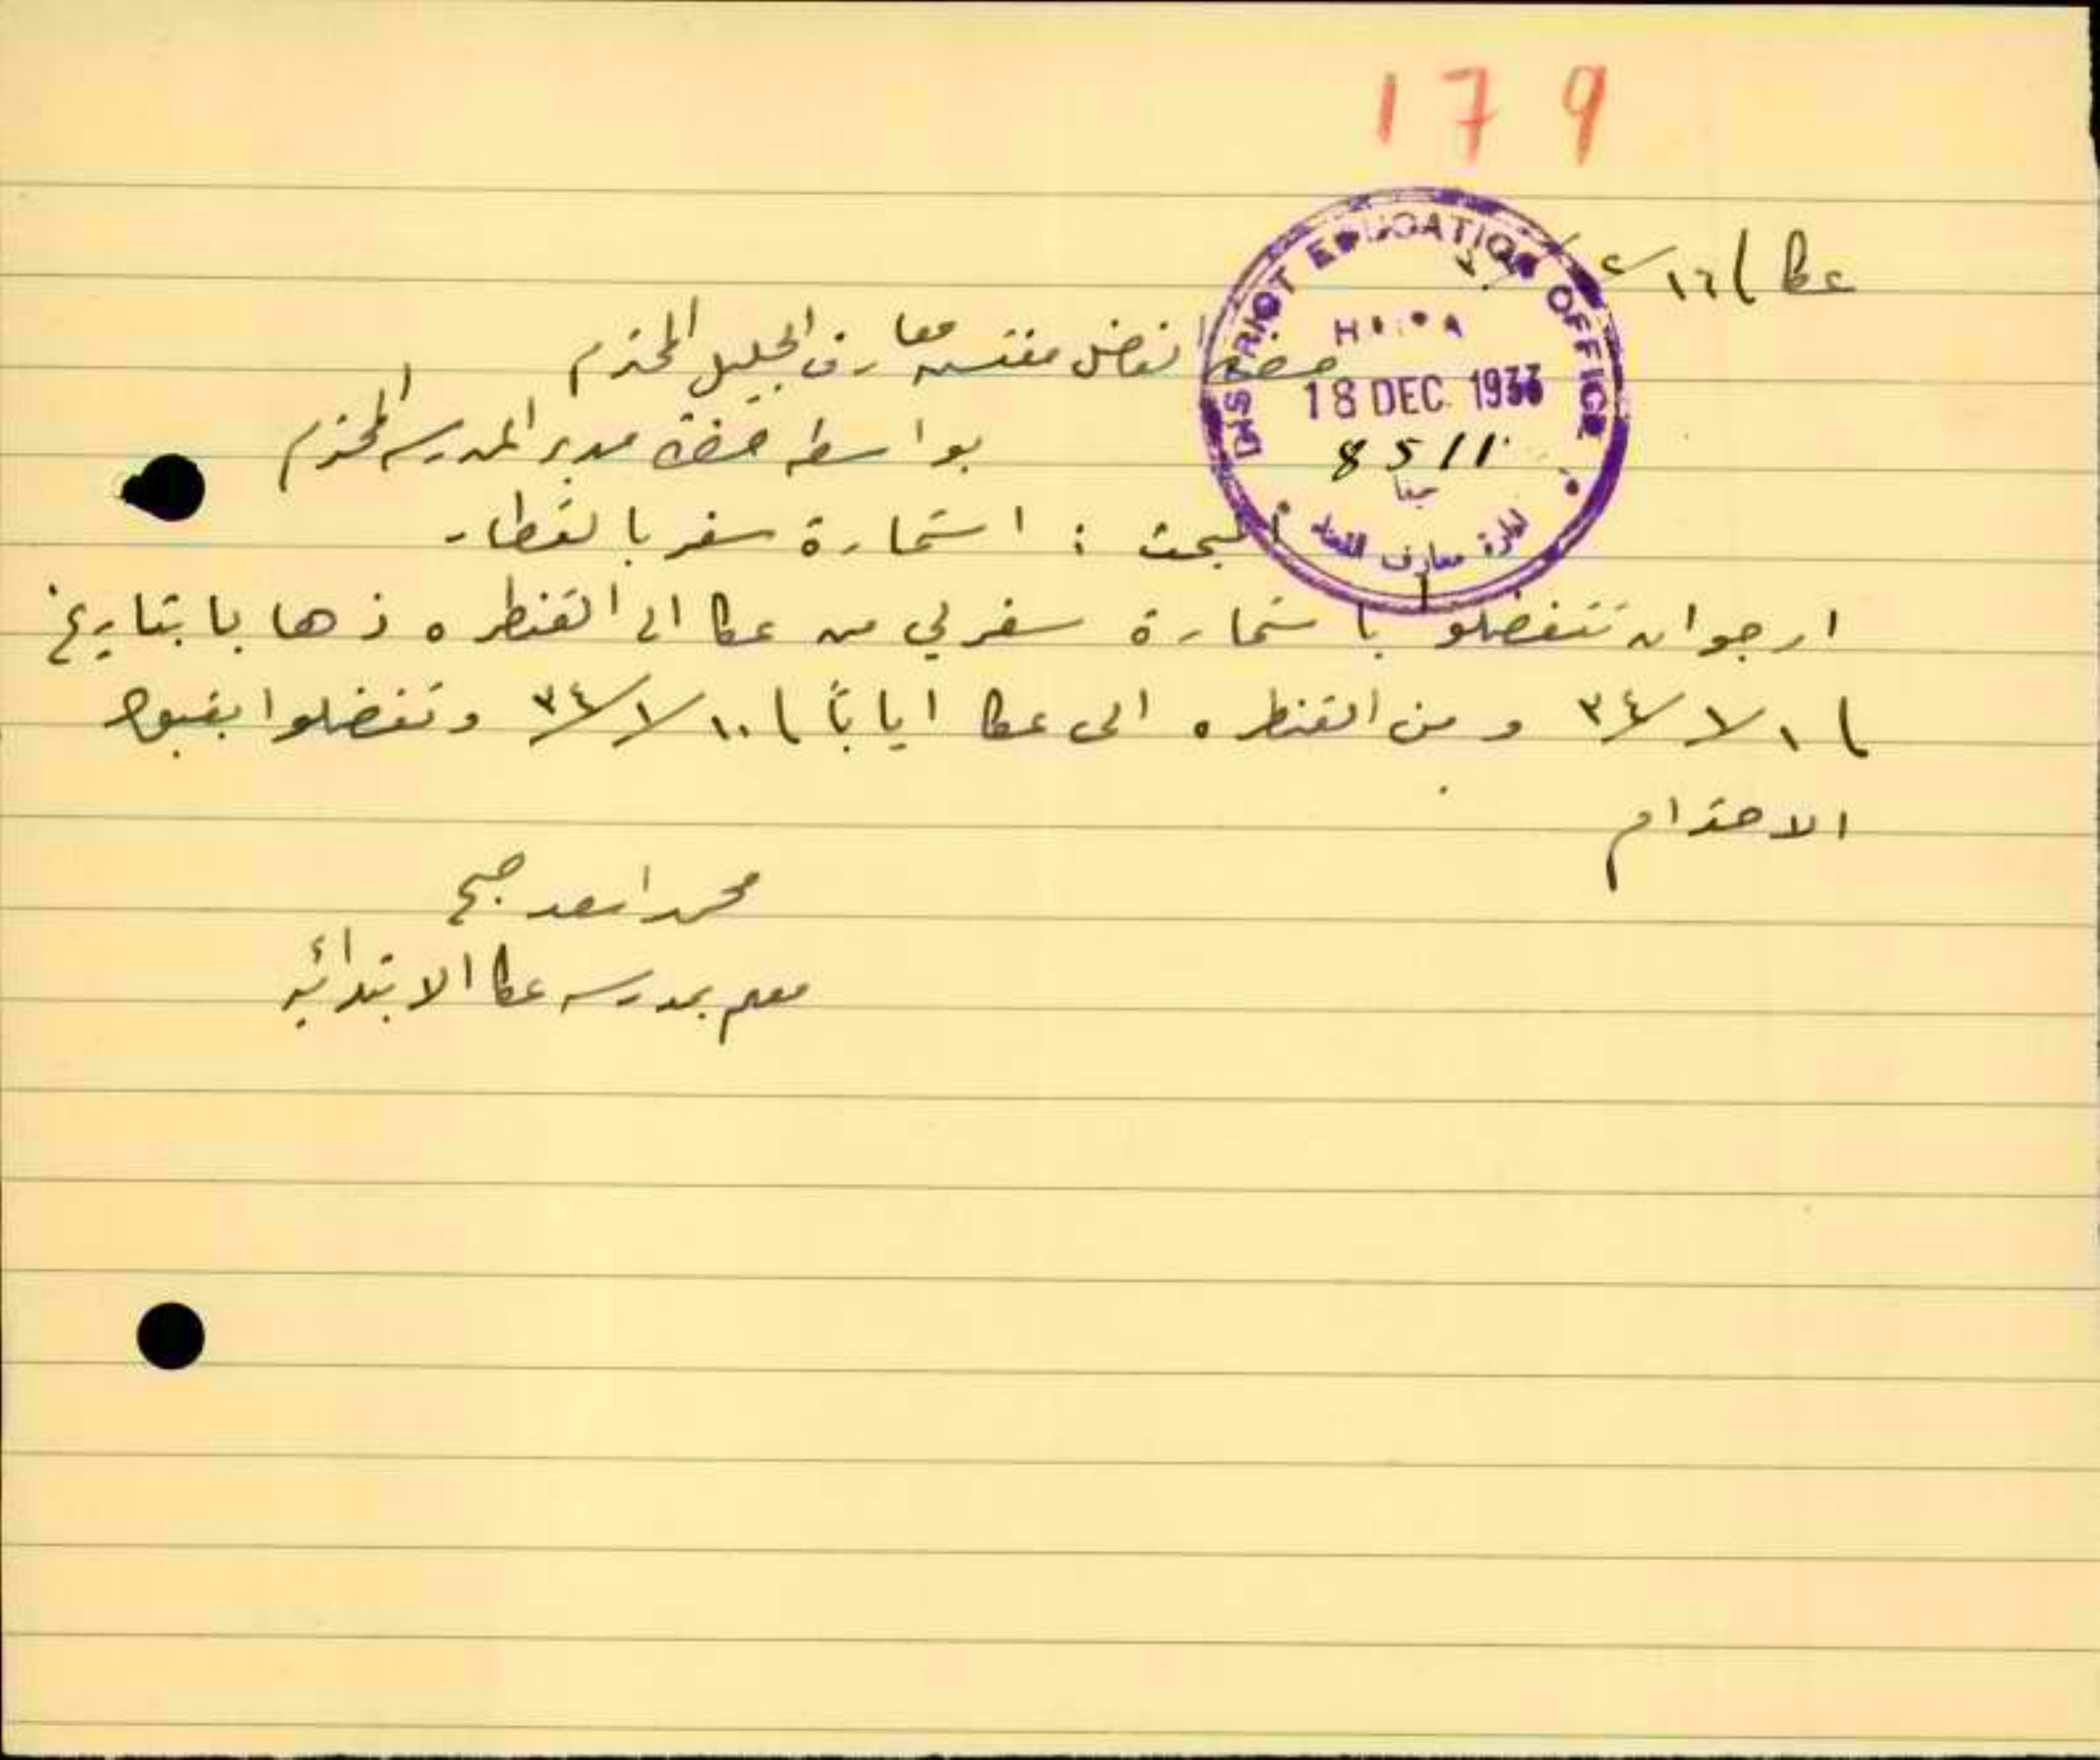 179
عكا ١٦
DISTRICT EDUCATION OFFICE
HAIFA
18 DEC. 1933
8511
حيفا
ادارة معارف اللواء
حضرة الفاضل مفتش معارف الجليل المحترم
بواسطة حضرة مدير المدرسه المحترم
المبحث : استمارة سفر بالقطار
ارجو ان تتفضلو باستمارة سفر لي من عكا الى القنطره ذهابا بتاريخ
١/١/٣٤ ومن القنطره الى عكا اياباً ١٠/١/٣٤ وتفضلوا بقبول
الاحترام
محمد اسعد صبح
معلم بمدرسه عكا الابتدائيه